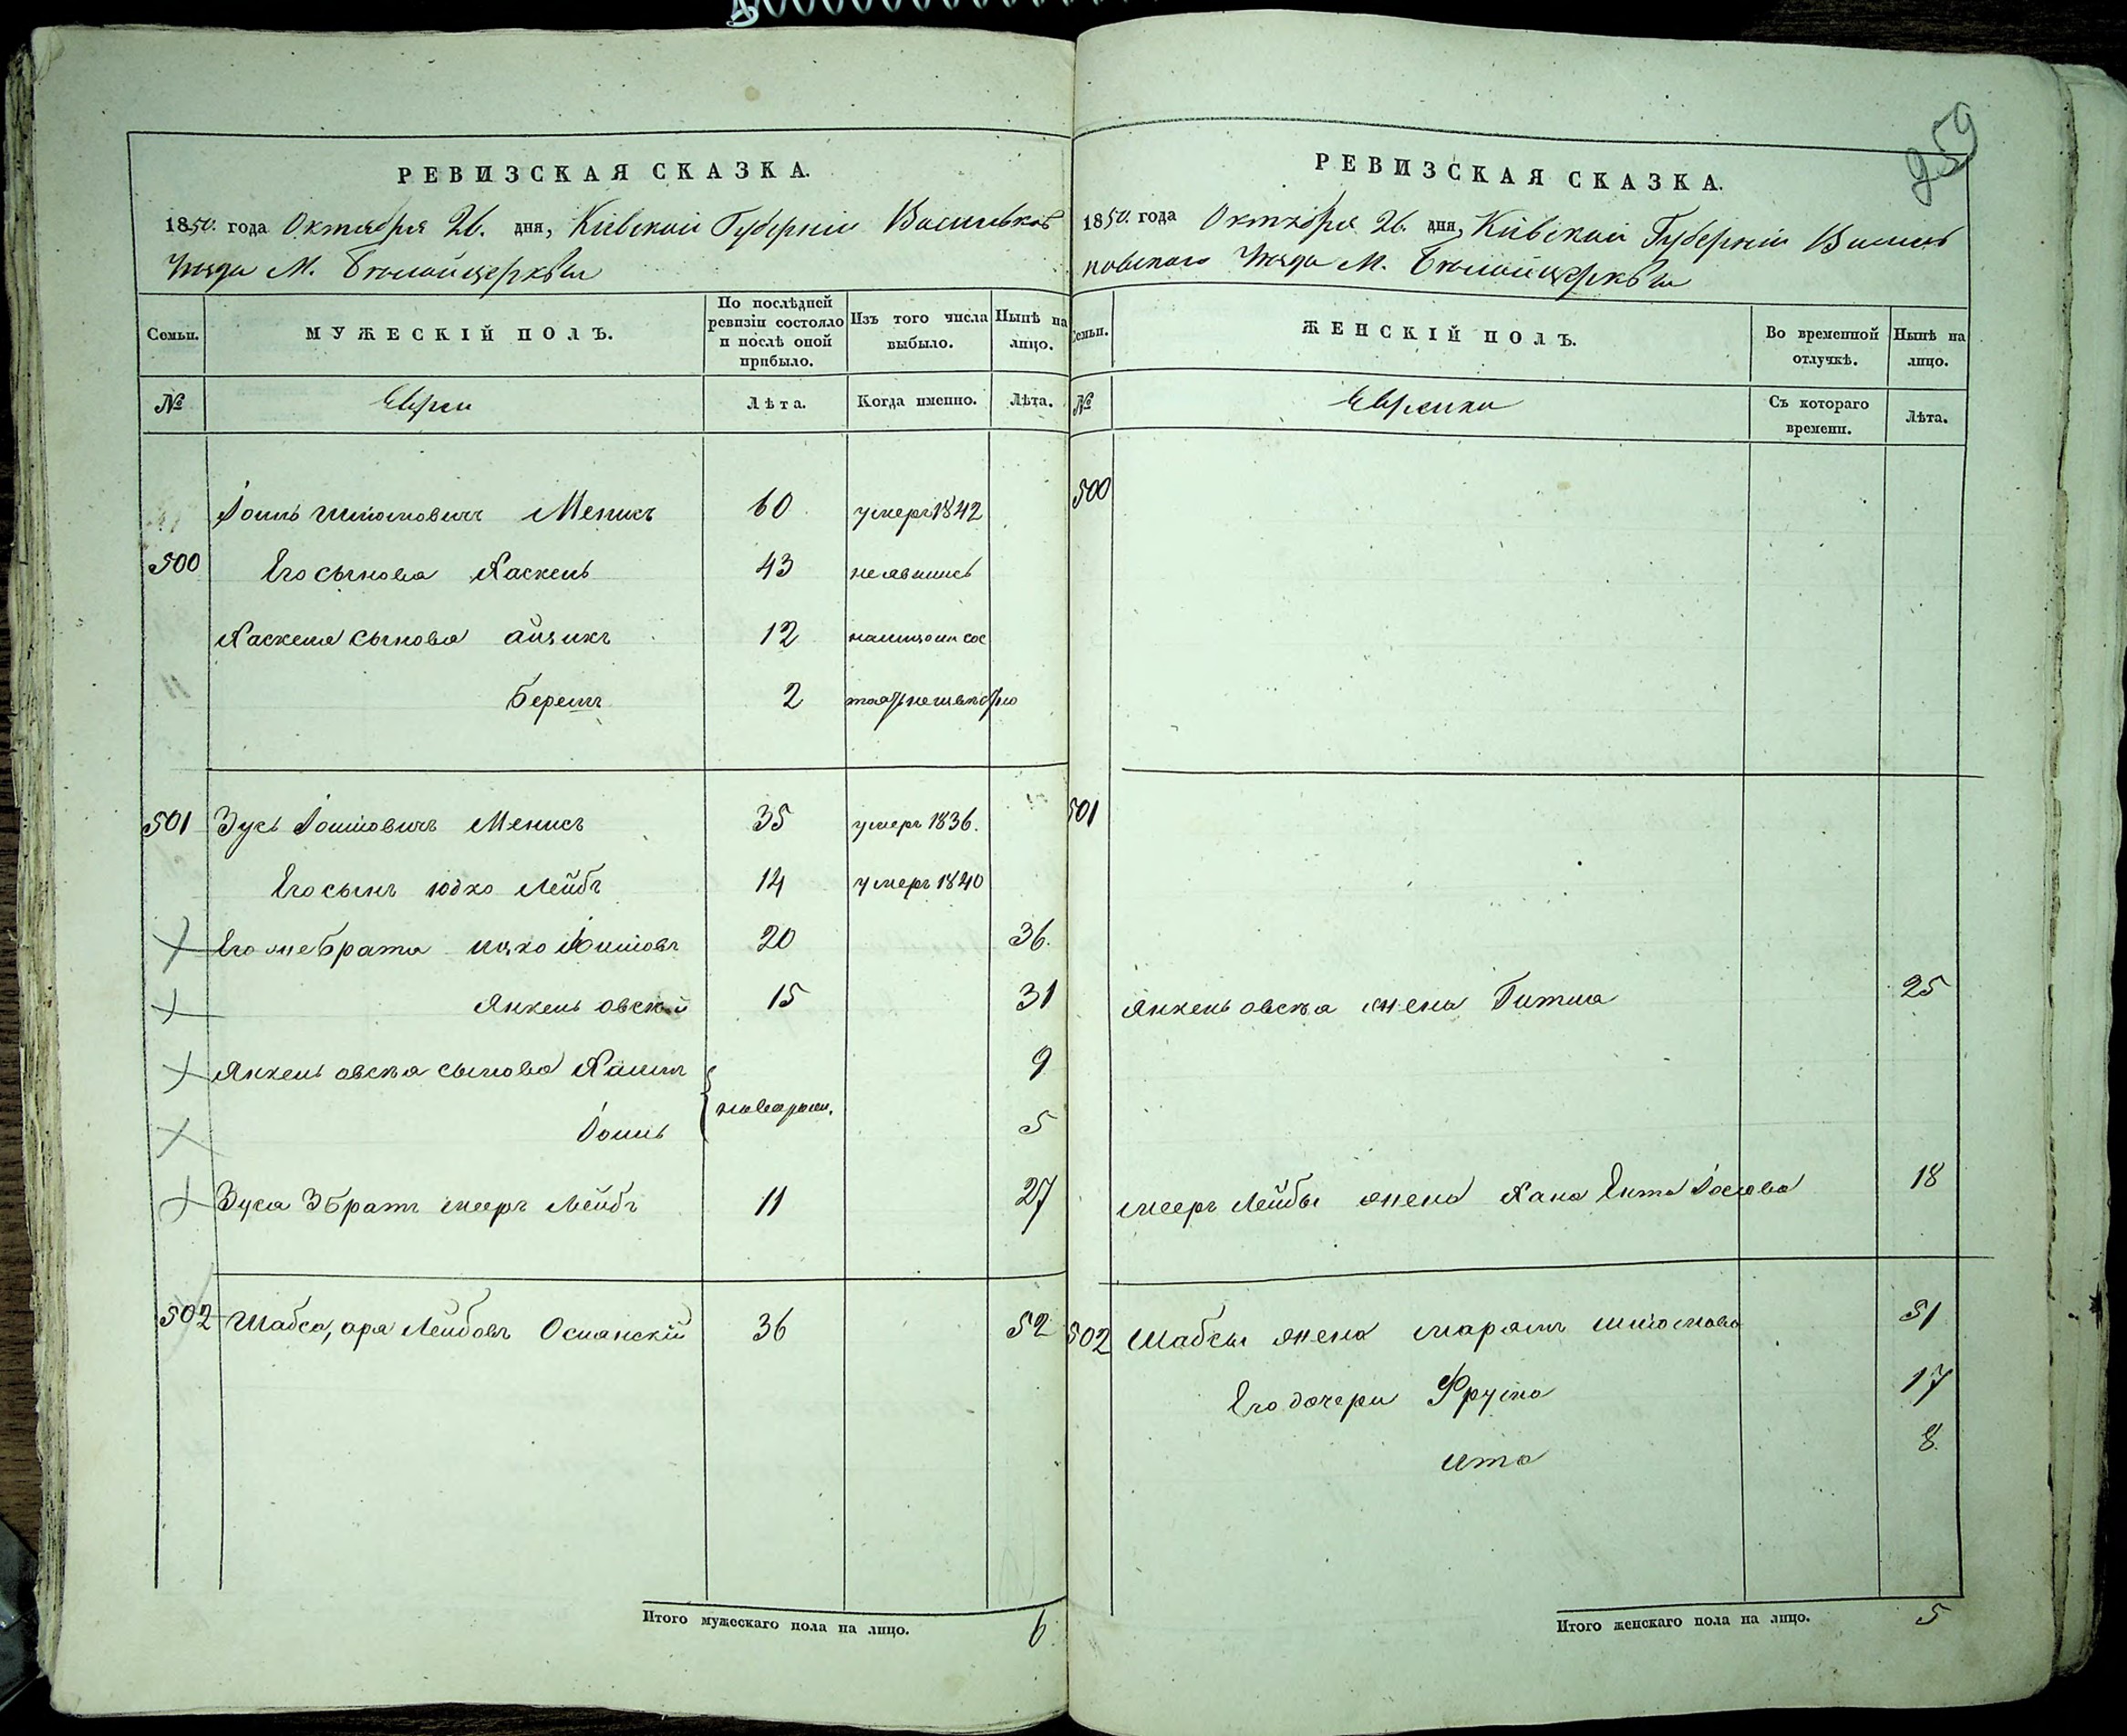 259
РЕВИЗСКАЯ СКАЗКА.
1850. года Октября 26. дня, Кіевской Губерніи Васильков
Уезда М. Белойцеркви
Семьи.
МУЖЕСКІЙ ПОЛЪ.
По послѣдней ревизіи состояло и послѣ оной прибыло.
Изъ того числа выбыло.
Нынѣ на лицо.
№
Евреи
Лѣта.
Когда именно.
Лѣта.
Іоиль Шліомовичъ Меникъ 60 умеръ 1842
500 Его сыновья Хаскель 43
Хаскеля сыновья Айзикъ 12
Берель 2
501 Зусь Іоиліовичъ Меникъ 35 умеръ 1836.
Его сынъ Юдко Лейбъ 14 умеръ 1840
Его же брата Ицко 20 36.
Янкель Овсѣй 15 31
Янкель Овсѣя сыновья Хаимъ 9
Іоиль 5
Зуся 3 братъ Мееръ Лейбъ 11 27
502 Шабса, Ара Лейбовъ Османскій 36 52
Итого мужескаго пола на лицо. 6
РЕВИЗСКАЯ СКАЗКА.
1850. года Октября 26. дня, Кіевской Губерніи Василь
ковского Уезда М. Белойцеркви
Семьи.
ЖЕНСКІЙ ПОЛЪ.
Во временной отлучкѣ.
Нынѣ на лицо.
№
Еврейки
Съ котораго времени.
Лѣта.
500
501
Янкель Овсѣя жена Гитля 25
Мееръ Лейбы жена Хана Ента 18
502 Шабсы жена Марямъ Шліомова 51
Его дочери Фрума 17
Ита 8.
Итого женскаго пола на лицо. 5